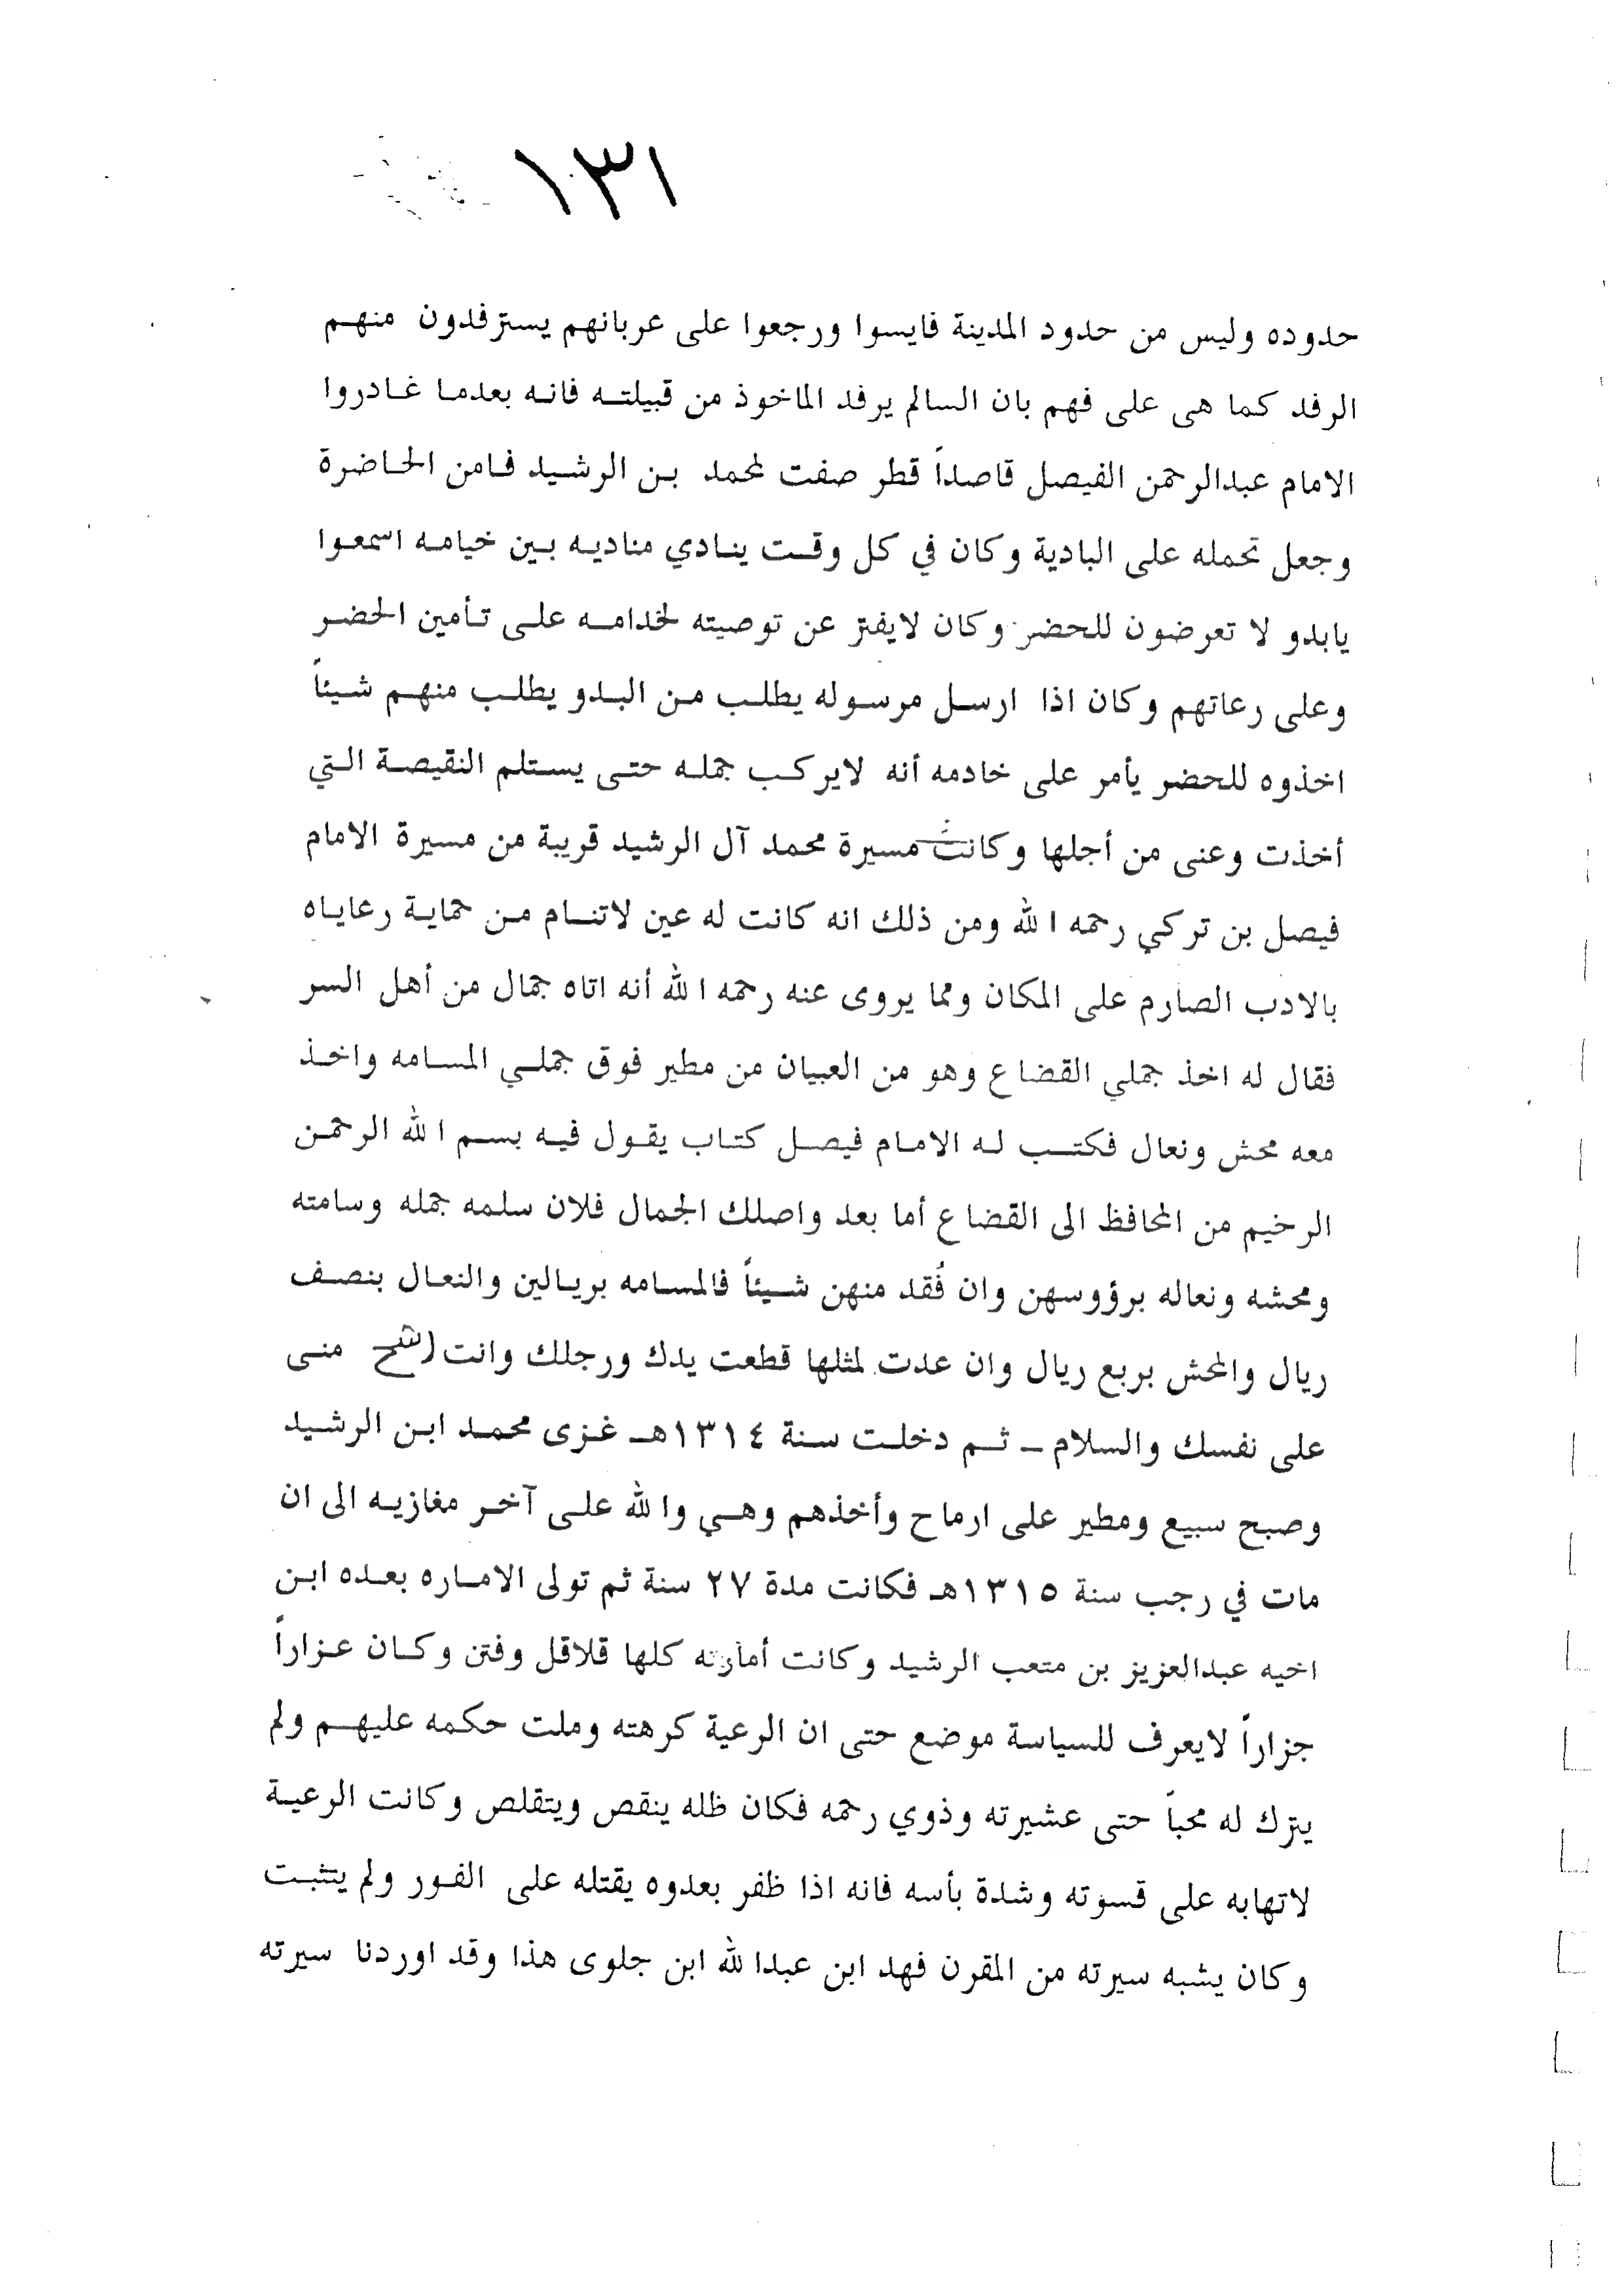 ١٣١
حدوده وليس من حدود المدينة فايسوا ورجعوا على عربانهم يسترفدون منهم
الرفد كما هي على فهم بان السالم يرفد الماخوذ من قبيلته فانه بعدما غادروا
الامام عبدالرحمن الفيصل قاصداً قطر صفت لمحمد بن الرشيد فامن الحاضرة
وجعل تحمله على البادية وكان في كل وقت ينادي مناديه بين خيامه اسمعوا
يابدو لا تعرضون للحضر وكان لايفتر عن توصيته لخدامه على تأمين الحضر
وعلى رعاتهم وكان اذا ارسل مرسوله يطلب من البدو يطلب منهم شيئاً
اخذوه للحضر يأمر على خادمه أنه لايركب جمله حتى يستلم النقيصة التي
أخذت وعنى من أجلها وكانت مسيرة محمد آل الرشيد قريبة من مسيرة الامام
فيصل بن تركي رحمه الله ومن ذلك انه كانت له عين لاتنام من حماية رعاياه
بالادب الصارم على المكان ومما يروى عنه رحمه الله أنه اتاه جمال من أهل السر
فقال له اخذ جملي القضاع وهو من العبيان من مطير فوق جملي المسامه واخذ
معه محش ونعال فكتب له الامام فيصل كتاب يقول فيه بسم الله الرحمن
الرخيم من المحافظ الى القضاع أما بعد واصلك الجمال فلان سلمه جمله وسامته
ومحشه ونعاله برؤوسهن وان فُقد منهن شيئاً فالمسامه بريالين والنعال بنصف
ريال والمحش بربع ريال وان عدت لمثلها قطعت يدك ورجلك وانت منى
على نفسك والسلام – ثم دخلت سنة ١٣١٤هـ غزى محمد ابن الرشيد
وصبح سبيع ومطير على ارماح وأخذهم وهي والله على آخر مغازيه الى ان
مات في رجب سنة ١٣١٥هـ فكانت مدة ٢٧ سنة ثم تولى الاماره بعده ابن
اخيه عبدالعزيز بن متعب الرشيد وكانت أمارته كلها قلاقل وفتن وكان عزاراً
جزاراً لايعرف للسياسة موضع حتى ان الرعية كرهته وملت حكمه عليهم ولم
يترك له محباً حتى عشيرته وذوي رحمه فكان ظله ينقص ويتقلص وكانت الرعية
لاتهابه على قسوته وشدة بأسه فانه اذا ظفر بعدوه يقتله على الفور ولم يتثبت
وكان يشبه سيرته من المقرن فهد ابن عبدالله ابن جلوى هذا وقد اوردنا سيرته